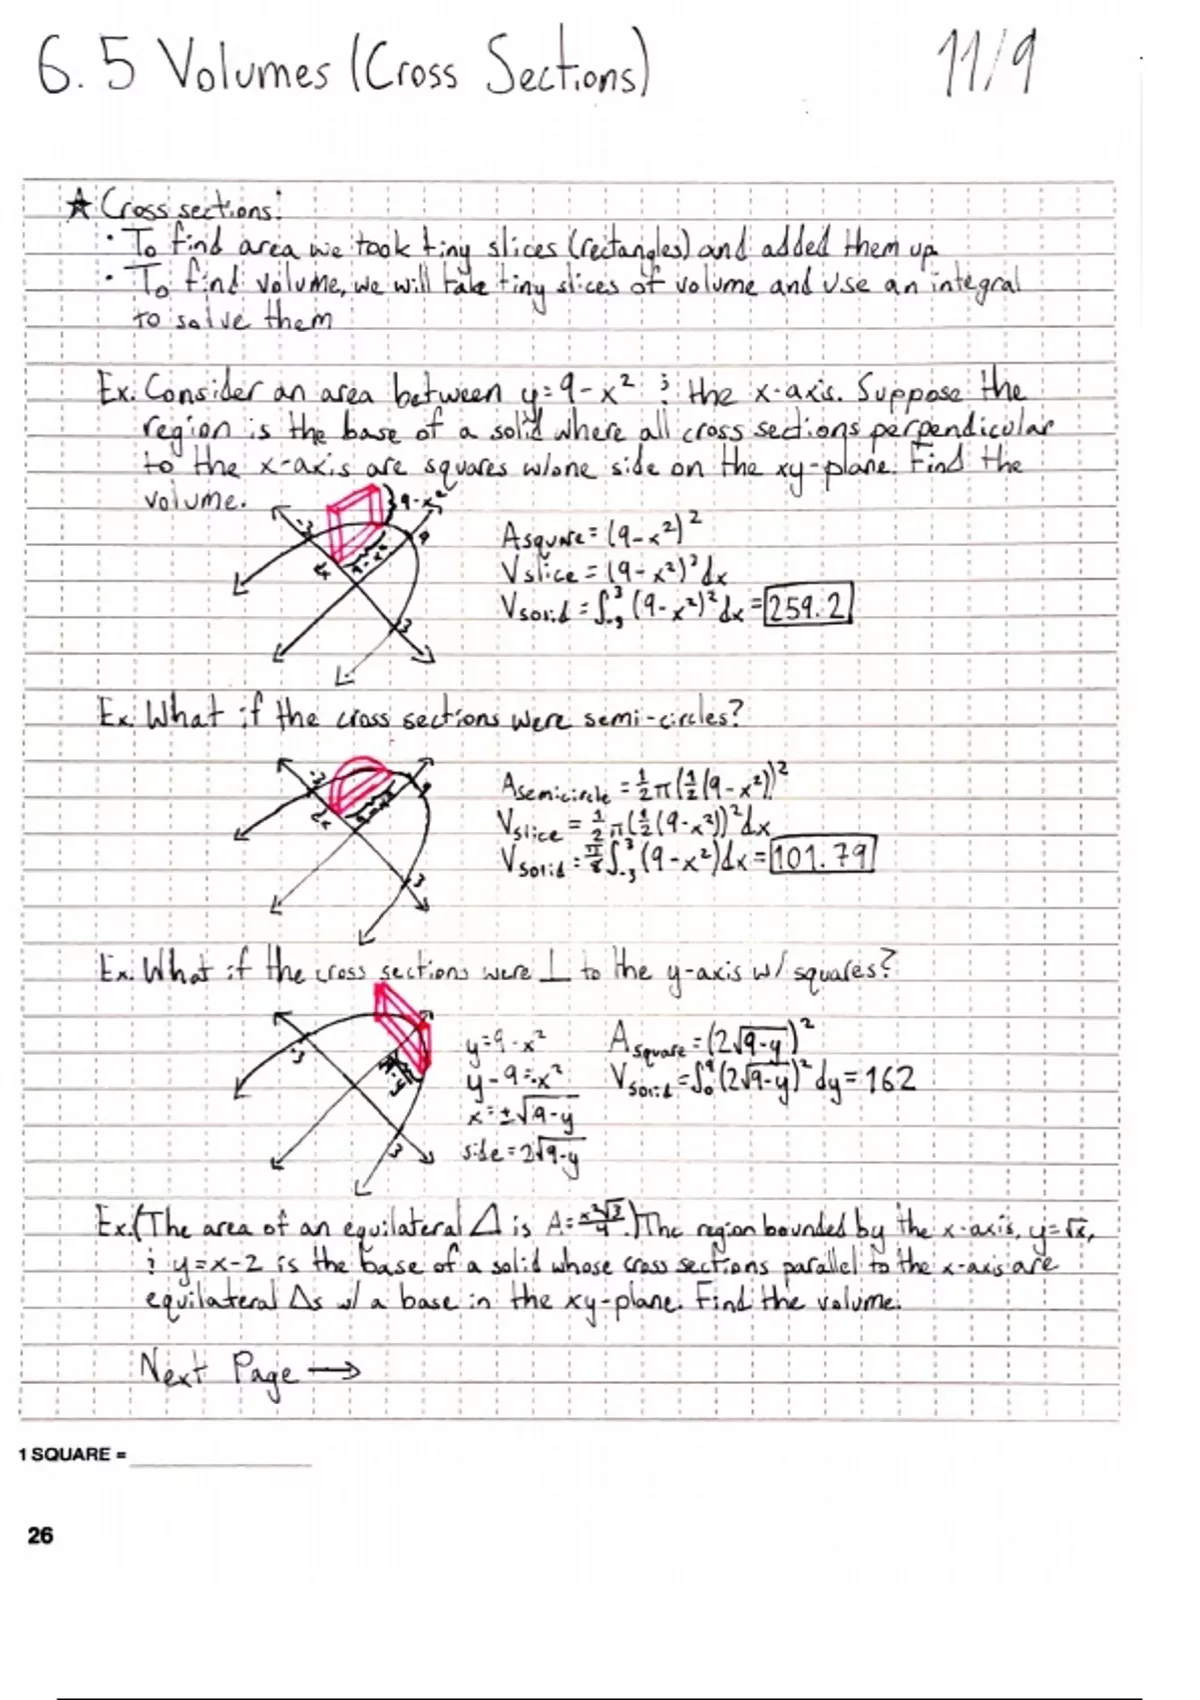 6.5 Volumes (Cross Sections) 11/9
★ Cross sections:
· To find area we took tiny slices (rectangles) and added them up
· To find volume, we will take tiny slices of volume and use an integral
to solve them
Ex. Consider an area between y=9-x² & the x-axis. Suppose the
region is the base of a solid where all cross sections perpendicular
to the x-axis are squares w/one side on the xy-plane. Find the
volume.
-3 9-x²
9
9-x²
3
A square = (9-x²)²
V slice = (9-x²)²dx
V solid = ∫₋₃³ (9-x²)²dx = 259.2
Ex. What if the cross sections were semi-circles?
-3
9
3
A semicircle = ½π(½(9-x²))²
V slice = ½π(½(9-x²))²dx
V solid = π/8 ∫₋₃³ (9-x²)dx = 101.79
Ex. What if the cross sections were ⊥ to the y-axis w/ squares?
-3
3
y=9-x²
y-9=-x²
x=±√9-y
side=2√9-y
A square = (2√9-y)²
V solid = ∫₀⁹ (2√9-y)² dy = 162
Ex. (The area of an equilateral △ is A= x²√3/4.) The region bounded by the x-axis, y=√x,
& y=x-2 is the base of a solid whose cross sections parallel to the x-axis are
equilateral △s w/ a base in the xy-plane. Find the volume.
Next Page →
1 SQUARE = ____________
26